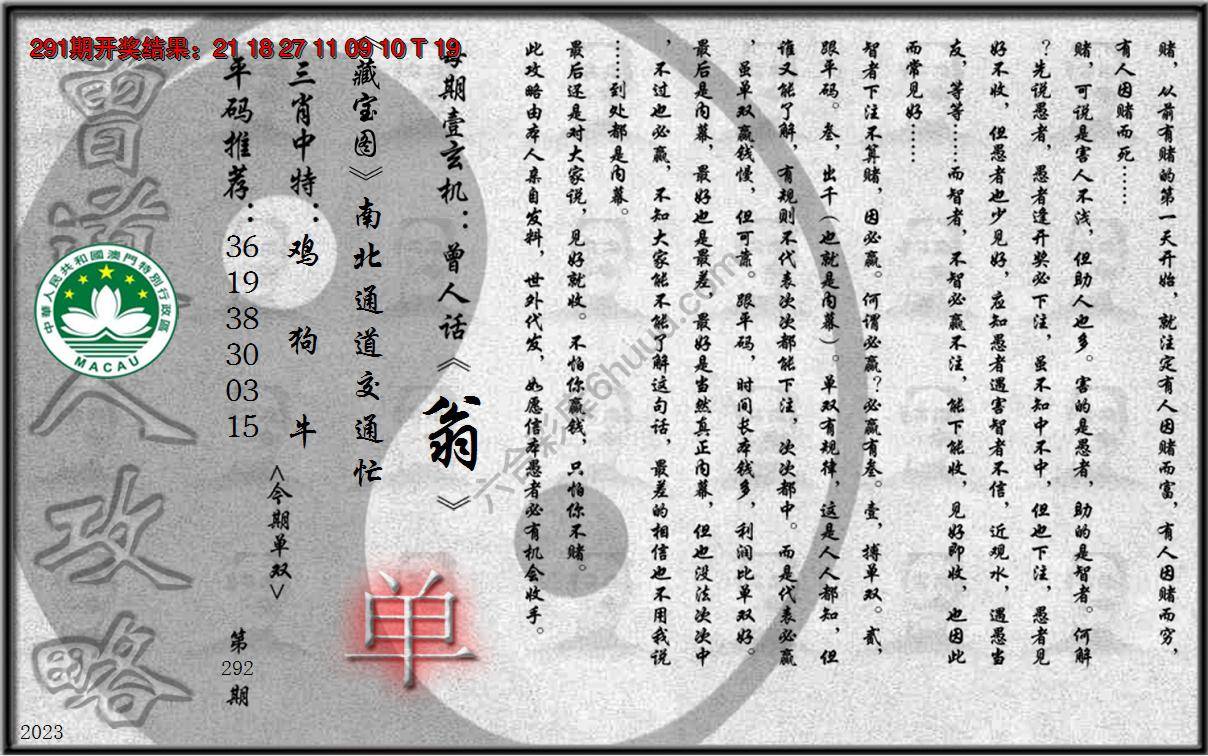 291期开奖结果：21 18 27 11 09 10 T 19
赌，从前有赌的第一天开始，就注定有人因赌而富，有人因赌而穷，
有人因赌而死……
赌，可说是害人不浅，但助人也多。害的是愚者，助的是智者。何解
？先说愚者，愚者逢开奖必下注，虽不知中不中，但也下注，愚者见
好不收，但愚者也少见好，应知愚者遇害智者不信，近观水，遇愚当
友，等等……而智者，不智必赢不注，能下能收，见好即收，也因此
而常见好……
智者下注不算赌，因必赢。何谓必赢？必赢有叁。壹，搏单双。贰，
跟平码。叁，出千（也就是内幕）。单双有规律，这是人人都知，但
谁又能了解，有规则不代表次次都能下注，次次都中。而是代表必赢
，虽单双赢钱慢，但可靠。跟平码，时间长本钱多，利润比单双好。
最后是内幕，最好也是最差，最好是当然真正内幕，但也没法次次中
，不过也必赢，不知大家能不能了解这句话，最差的相信也不用我说
……到处都是内幕。
最后还是对大家说，见好就收。不怕你赢钱，只怕你不赌。
此攻略由本人亲自发料，世外代发，如愿信本愚者必有机会收手。
每期壹玄机：曾人话《翁》
《藏宝图》南北通道交通忙
三肖中特：鸡 狗 牛
平码推荐：36 19 38 30 03 15
<今期单双>
单
第292期
曾道人攻略
中華人民共和國澳門特別行政區
MACAU
2023